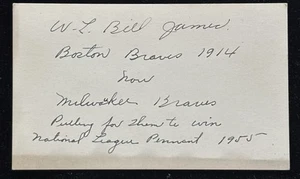 W-L "Bill" James.
Boston Braves 1914
Now
Milwakee Braves
Pulling for Them to win
National League Pennant 1955